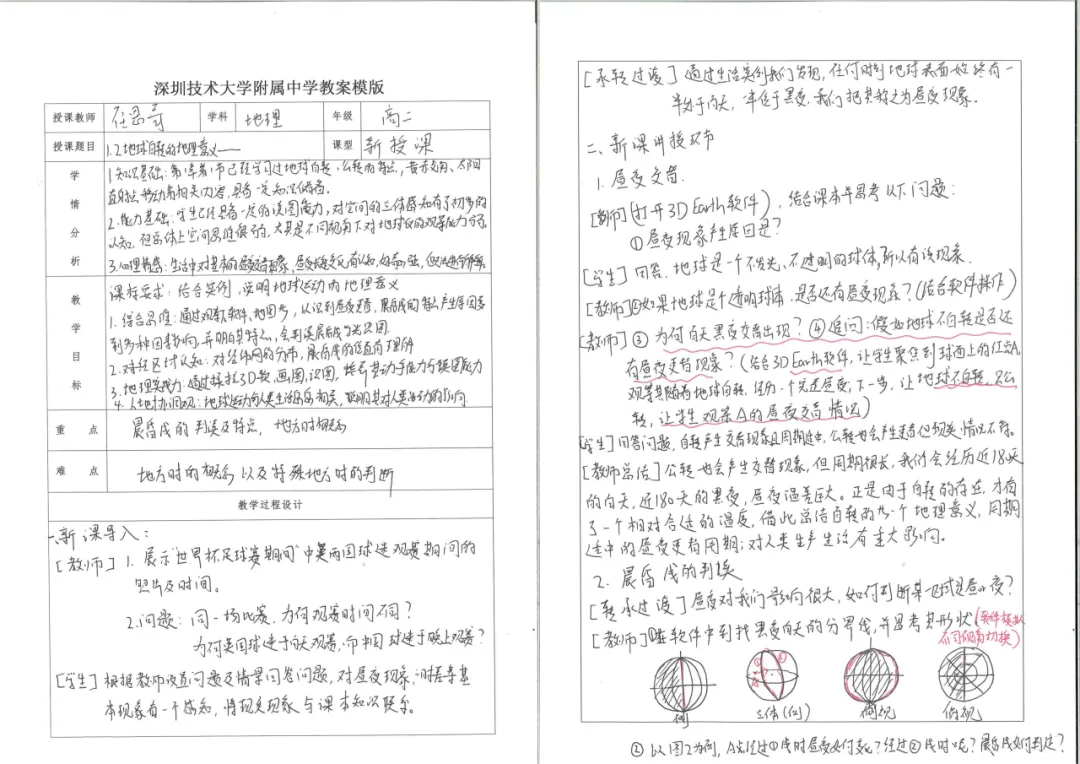 深圳技术大学附属中学教案模版
授课教师 学科 地理 年级 高二
授课题目 1.2地球自转的地理意义—— 课型 新授课
学情分析
1.知识基础:第1章第1节已经学习过地球自转、公转的特点,黄赤交角、太阳
直射点移动有相关内容,具备一定知识储备。
2.能力基础:学生已经具备一定的读图能力,对空间的三体感知有了初步的
认知,但总体上空间思维能力弱,尤其是不同视角下对地球仪的观察能力
3.心理情感:生活中对基本的昼夜交替现象,
教学目标
课标要求:结合实例,说明地球运动的地理意义
1.综合思维:通过观察软件、地图等,认识到昼夜更替,晨昏线的特点产生原因
到多种因素影响,
2.区域认知:对经纬网的分布,晨昏线的位置有理解
3.地理实践力:通过模拉3D软,画图,识图,培养劳动手能力与读图能力
4.人地协调观:地球运动与人类生活息息相关,
重点 晨昏线的判读及特点,地方时概念
难点 地方时的概念以及特殊地方时的判断
教学过程设计
一、新课导入:
[教师] 1.展示“世界杯足球赛期间”中英两国球迷观赛期间的
照片及时间。
2.问题:同一场比赛,为何观赛时间不同?
为何英国球迷于白天观赛,而中国球迷于晚上观赛?
[学生] 根据教师设置问题及情景回答问题,对昼夜现象、时差等基
本现象有一个感知,情现实现象与课本知识联系。
[承转过渡] 通过生活实例我们发现,任何时刻地球表面始终有一
半处于白天,一半位于黑夜,我们把其称之为昼夜现象。
二、新课讲授环节
1.昼夜交替.
[教师](打开3D Earth软件),结合课本并思考以下问题:
①昼夜现象产生原因是?
[学生] 回答.地球是一个不发光、不透明的球体,所以有该现象.
[教师]②如果地球是个透明球体,是否还有昼夜现象?(结合软件操作)
[教师]③为何白天黑夜交替出现?④追问:假如地球不自转是否还
有昼夜更替现象?(结合3D Earth软件,让学生聚焦到球面上的红点A,
观察其随着地球自转,经历一个完整昼夜,下一步,让地球不自转,只公
转,让学生观察A的昼夜交替情况)
[学生]回答问题,自转产生交替现象且周期适中,公转也会产生更替但现实情况不符。
[教师总结]公转也会产生交替现象,但周期很长,我们会经历近18天
的白天,近180天的黑夜,昼夜温差巨大。正是由于自转的存在,才有
了一个相对合适的温度,借此总结自转的第一个地理意义,周期
适中的昼夜更替周期;对人类生产生活有重大影响。
2.晨昏线的判读
[承转过渡]昼夜对我们影响很大,如何判断某一地球是昼or夜?
[教师]①在软件中到找黑夜白天的分界线,并思考其形状(软件模拟
不同视角切换)
侧 立体(侧) 侧视 俯视
②以图2为例,A点经过①线时昼夜如何变化?经过②线时呢?晨昏线如何判定?